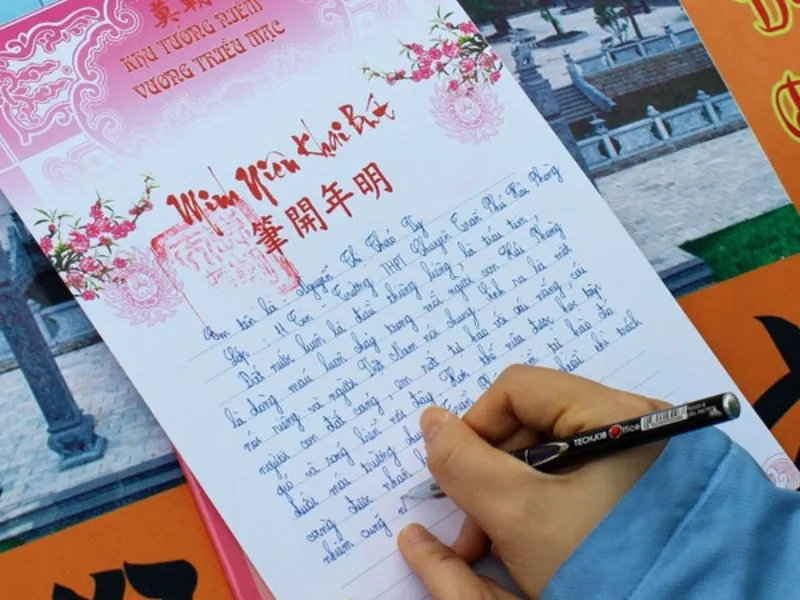 KHU TƯỞNG NIỆM
VƯƠNG TRIỀU MẠC
Minh Niên Khai Bút
筆開年明
Em tên là : Nguyễn Thị Thảo Vy
Lớp : 11 Tin Trường THPT Chuyên Trần Phú Hải Phòng
Đất nước luôn là điều thiêng liêng, là trái tim,
là dòng máu luôn chảy trong mỗi người con Hải Phòng
nói riêng và người Việt Nam nói chung. Sinh ra là một
người con đất cảng, em rất tự hào và cái nắng, cái
gió và sóng biển nơi đây. Hơn thế nữa được học tập
dưới mái trường chuyên Trần Phú em tự hào đó
càng được nhân
nhiệm cùng
TECHJOB Office